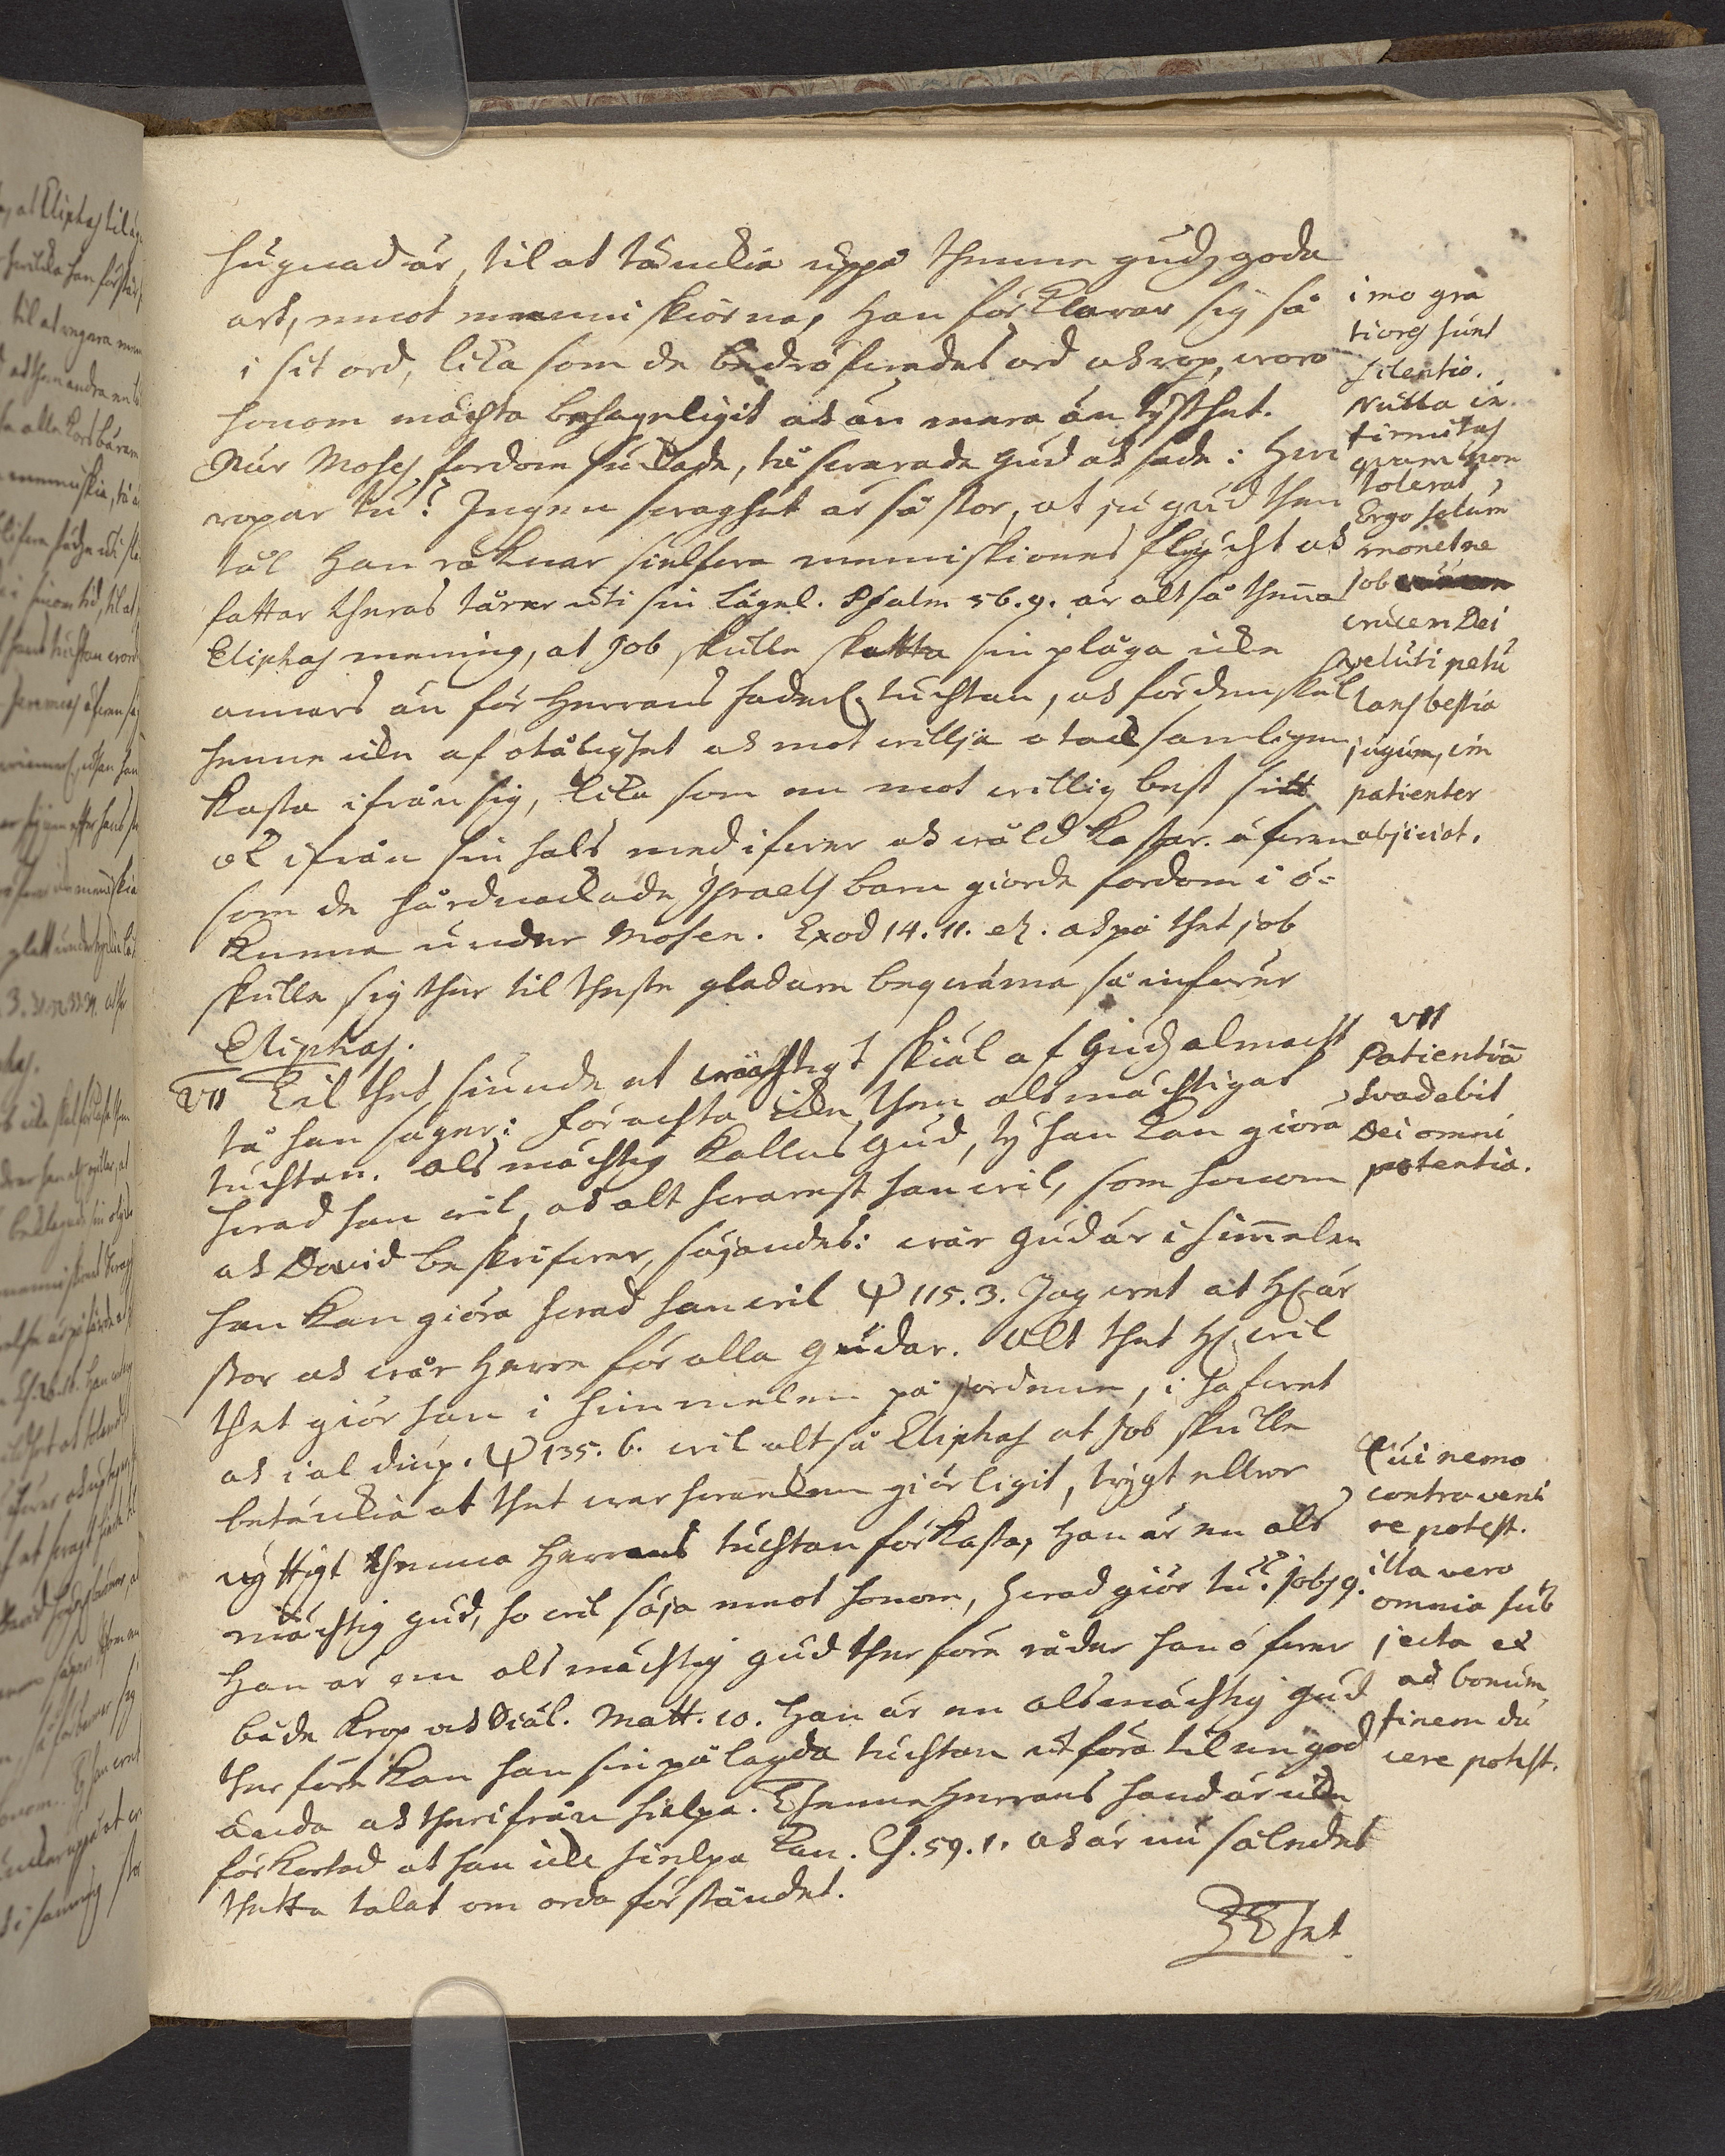 hugnad är, til at tänckia uppå thenne gudz goda
art, emot menniskiorna, han förklarar sig så
i sit ord, lika som de bedröfwedes ord och rop, woro
honom mächta behageligit och än mera än tysthet.
När Moses fordom suckade, tå swarade Gud och sade: hwi
ropar tu? Ingen swaghet är så stor, at ju gud then
tål han räknar sielfwa menniskiones flycht och
fattar theras tårar uti sin Lägel. Psalm 56. 9. är altså thenna
Eliphas mening, at Job skulle skatta sin plåga icke
annars än för Herrans faderl. tuchtan, och fördenskul
henne icke af otålighet och motwillja otacksamligen
kasta ifrån sig, lika som en motwillig best sitt
ok ifrån sin hals med ifwer och wåld kastar. äfwen
som de hårdnackade Israels barn giorde fordom i ö-
knenne under Mosen. Exod 14. 11. etc. och på thet Job
skulle sig ther til theste gladare beqwäma så införer
Eliphas.
VII Til thet siunde et wächtigt skiäl af Gudz almacht
tå han säger: förachta icke then alsmächtigas
tuchtan. alsmächtig kallas Gud, ty han kan giöra
hwad han wil, och alt hwarest han wil, som honom
och David beskrifwer, säjandes: wår Gud är i himmelen
han kan giöra hwad han wil Ψ 115. 3. Jag wet at H. är
stor och wår Herre för alla gudar. Alt thet H. wil
thet giör han i himmelen på jordenne, i hafwet
och i al diup. Ψ 135. 6. wil altså Eliphas at Job skulle
betänckia at thet war hwarcken giörligit, trygt eller
nyttigt thenna Herrans tuchtan förkasta, han är en als
mächtig gud, ho wil säja emot honom, hwad giör tu? Job 9.
Han är en alsmächtig gud therföre råder han öfwer
både Krop och Siäl. Matt. 10. Han är en alsmächtig Gud
therföre kan han sin pålagda tuchtan utföra til en god
ända och therifrån hielpa. Thenne Herrans hand är icke
förkortad at han icke hielpa kan. Es. 59. 1. och är nu således
thetta talat om orda förståndet.
Thet
imo gra
tiores sunt
silentio.
Nulla in
firmitas
quam non
tolerat,
Ergo solum
monet ne
Job
crucem Dei
veluti petu
lans bestia
jugum, im
patienter
abjiciat.
VII
Patientiã
svadebit
Dei omni
potentia.
Cui nemo
contraveni
re potest.
illa vero
omnia sub
jecta et
ad bonum
finem du
cere potest.